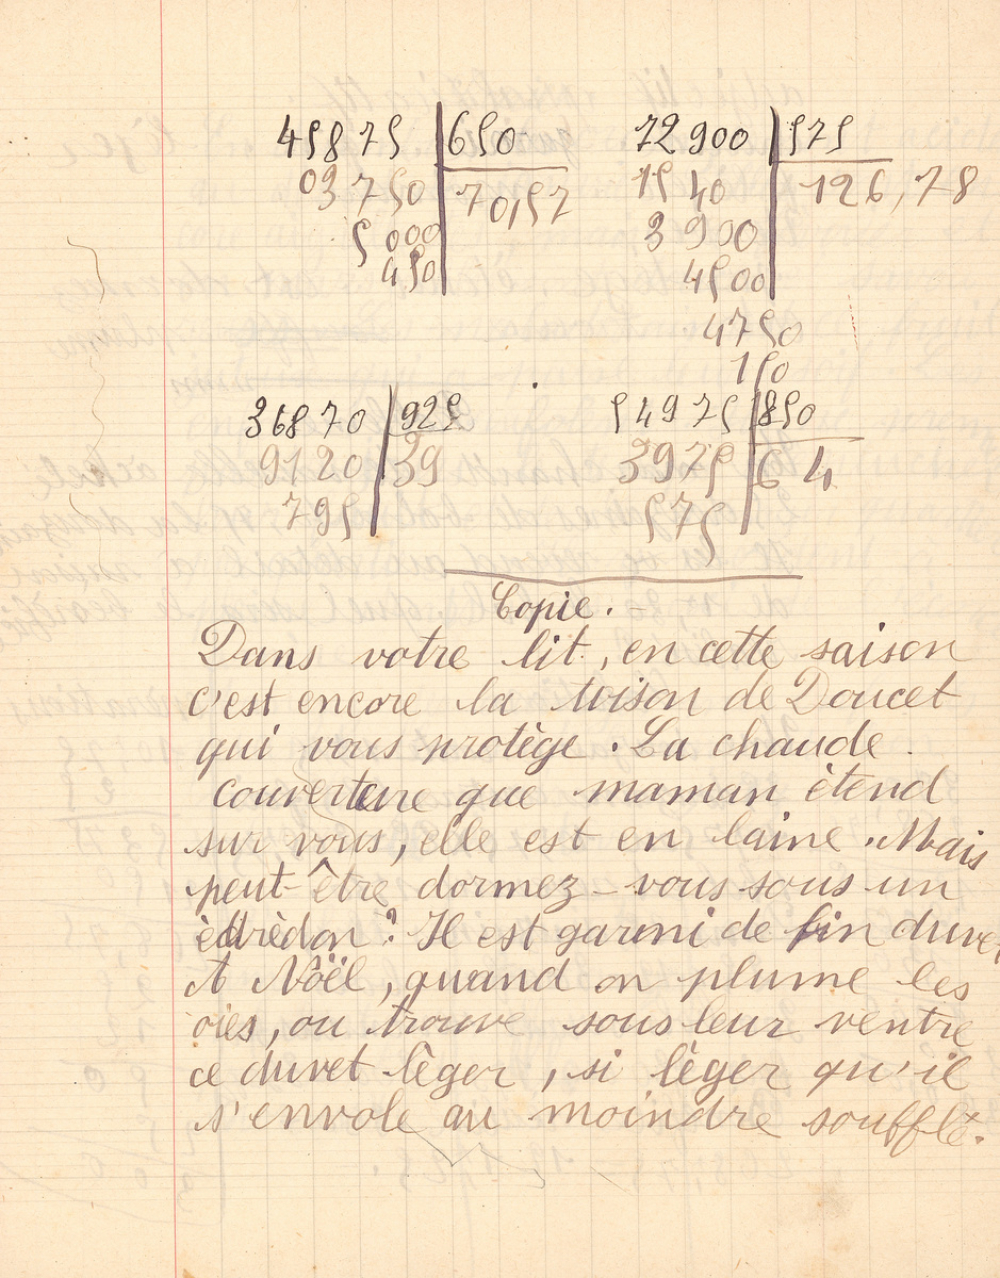 45875 650
03750 70,57
5000
450
72900 575
1540 126,78
3900
4500
4750
150
36870 925
9120 39
795
54975 850
3975 64
575
Copie.
Dans votre lit, en cette saison
c'est encore la toison de Doucet
qui vous protège. La chaude
couverture que maman étend
sur vous, elle est en laine. Mais
peut-être dormez-vous sous un
édrédon ? Il est garni de fin duvet
A Nöël, quand on plume les
oies, on trouve sous leur ventre
ce duvet léger, si léger qu'il
s'envole au moindre souffle.